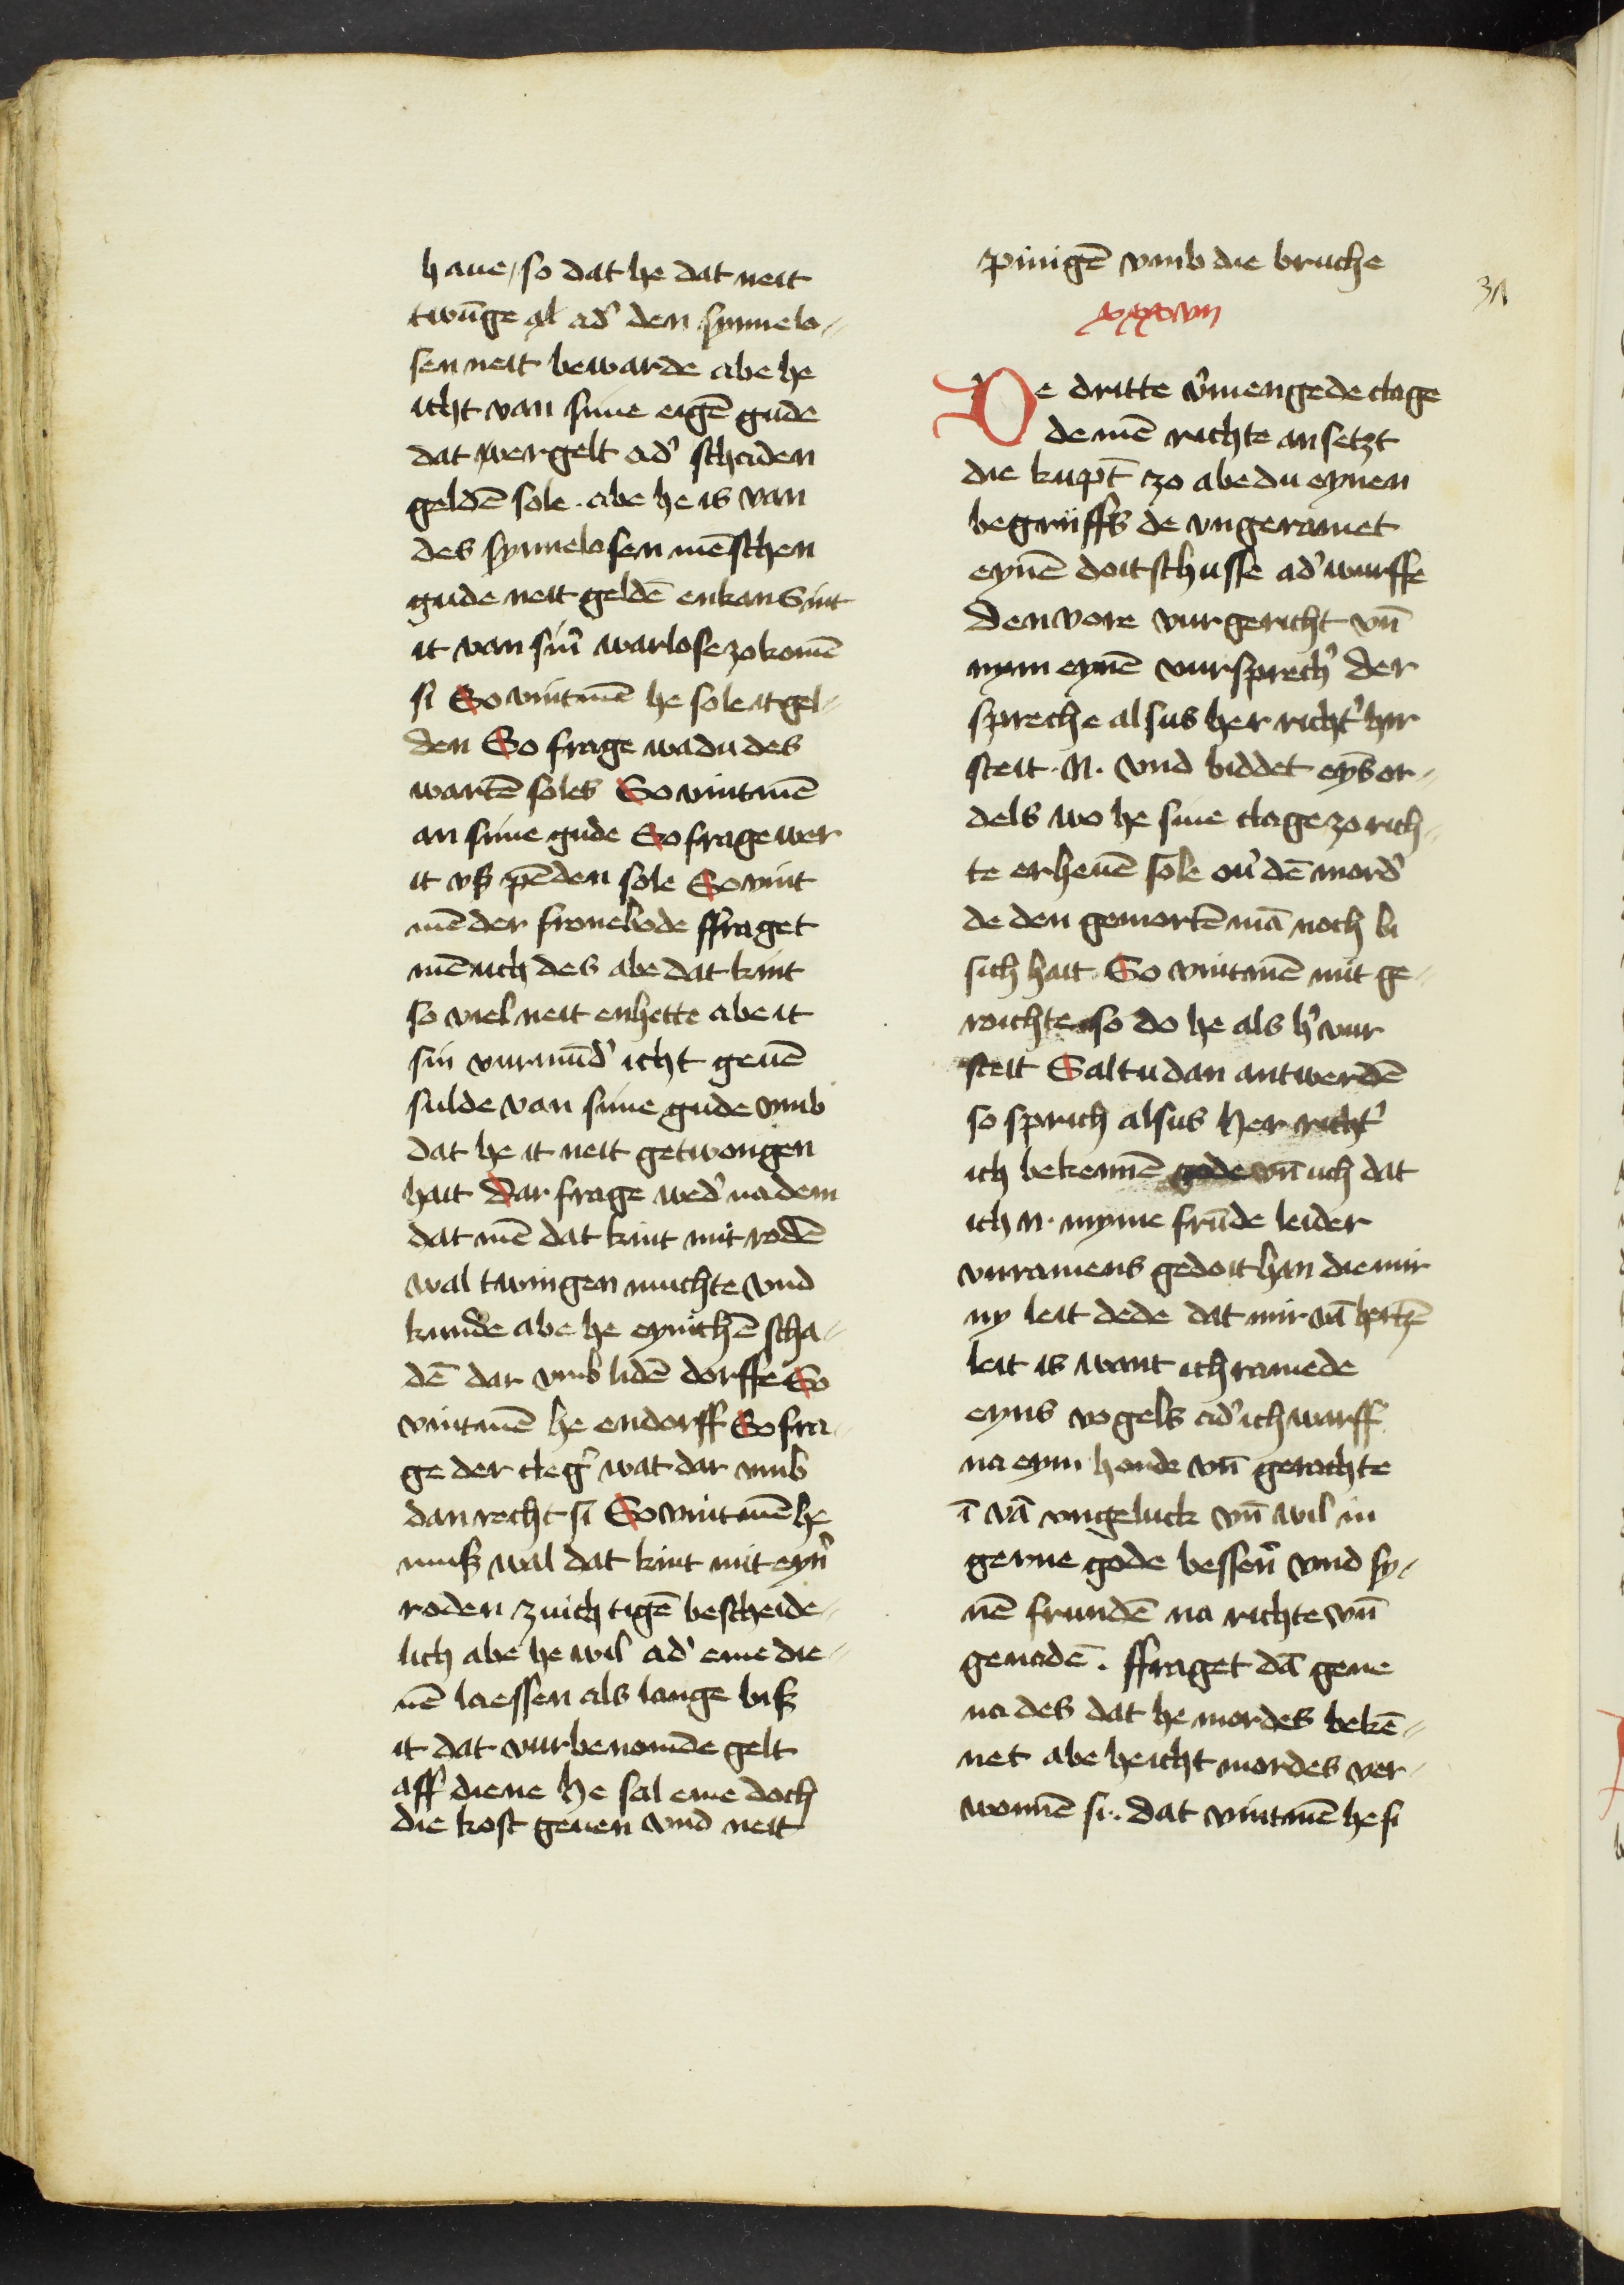 haue / so dat he dat neit
twūge al ad' den synnelo-
sen neit bewarde abe he
icht van sime eigē gude
dat wergelt ad' schaden
geldē sole . abe he is van
des synnelosen mēschen
gude neit geldē enkan Sint
it van sin' warlose zokomē
si So vintmē he sole it gel-
den So frage wa du des
wartē soles So vintmē
an sime gude So frage wer
it vß pēden sole So vint
mē der fronebode ffraget
mē uch des abe dat kint
so viel neit enhette abe it
sin vurmūd' icht geuē
sulde van sime gude vmb
dat he it neit getwongen
hait Dar frage wed' na dem
dat mē dat kint mit rodē
wal twingen muchte vnd
kunde abe he eynichē scha-
dē dar vmb lidē dorffe So
vintmē he endorff So fra-
ge der cleg' wat dar vmb
dan recht si So vintmē he
muß wal dat kint mit eyn'
roden zuichtigē bescheide-
lich abe he wil ad' eme die-
nē laessen als lange biß
it dat vurbenomde gelt
aff diene he sal eme doch
die kost geuen vnd neit
pinigē vmb die bruche
xxxviii
De dritte v'mengede clage
de mē richte an setzt
die kupt zo abe du eynen
begriiffs de vngeramet
eynē doit schusse ad' wurffe
Den vore vur gericht vn̄
nym eynē vursprech' der
spreche alsus her richt' hir
steit . N . vnd biddet eyns or-
dels wo he sine clage zo rich-
te erheuē sole ou' dē mord'
de den gemortē mā noch bi
sich hait . So vintmē mit ge-
roichte so do he als h' vur
steit Saltu dan antwerdē
so sprich alsus her richt'
ich bekennē gode vn̄ uch dat
ich N . myme frūde leider
vnramens gedoit han die mir
ny leit dede dat mir vā hertzē
leit is want ich ramede
eyns vogels ad' ich warff
na eym honde vn̄ gerachte
ī vā vngeluck vn̄ wil in
gerne gode bessen' vnd sy-
nē frundē na richte vn̄
genadē . ffraget dā gene
na des dat he mordes bekē-
net abe he icht mordes ver-
wonnē si . dat vintmē he si
31